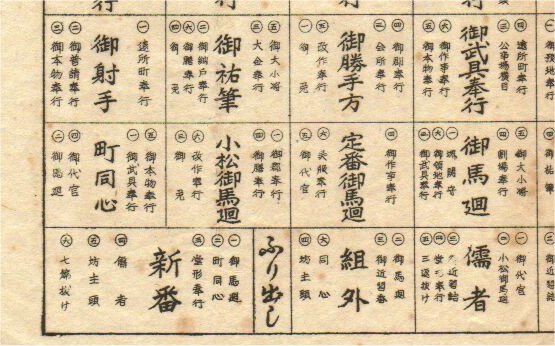 行
行
㊀御預地奉行
㊂遠所町奉行
㊃公事場横目
御武具奉行
㊅御作事奉行
㊄御本物奉行
㊃御厩奉行
㊁会所奉行
御勝手方
㊄改作奉行
㊀御免
㊄御大小将
御祐筆
㊁御納戸奉行
㊅御膳奉行
㊃御免
㊀遠所町奉行
御射手
㊁御普請奉行
㊂御本物奉行
㊄御大小将
㊃割場奉行
御馬廻
㊅御領地奉行
㊁御武具奉行
㊃御作事奉行
定番御馬廻
㊄御代官
㊀御郡奉行
㊃御膳奉行
小松御馬廻
㊅改作奉行
㊂御免
㊄御本物奉行
㊀御武具奉行
町同心
㊃御代官
㊁御馬廻
㊀御代官
㊁小松御馬廻
儒者
㊃堂形奉行
㊄三返抜け
㊁御馬廻
㊂御近習番
組外
㊅同心
㊃坊主頭
ふり出し
㊀御馬廻
㊁町同心
㊂堂形奉行
新番
㊃儒者
㊄坊主頭
㊅七篇抜け